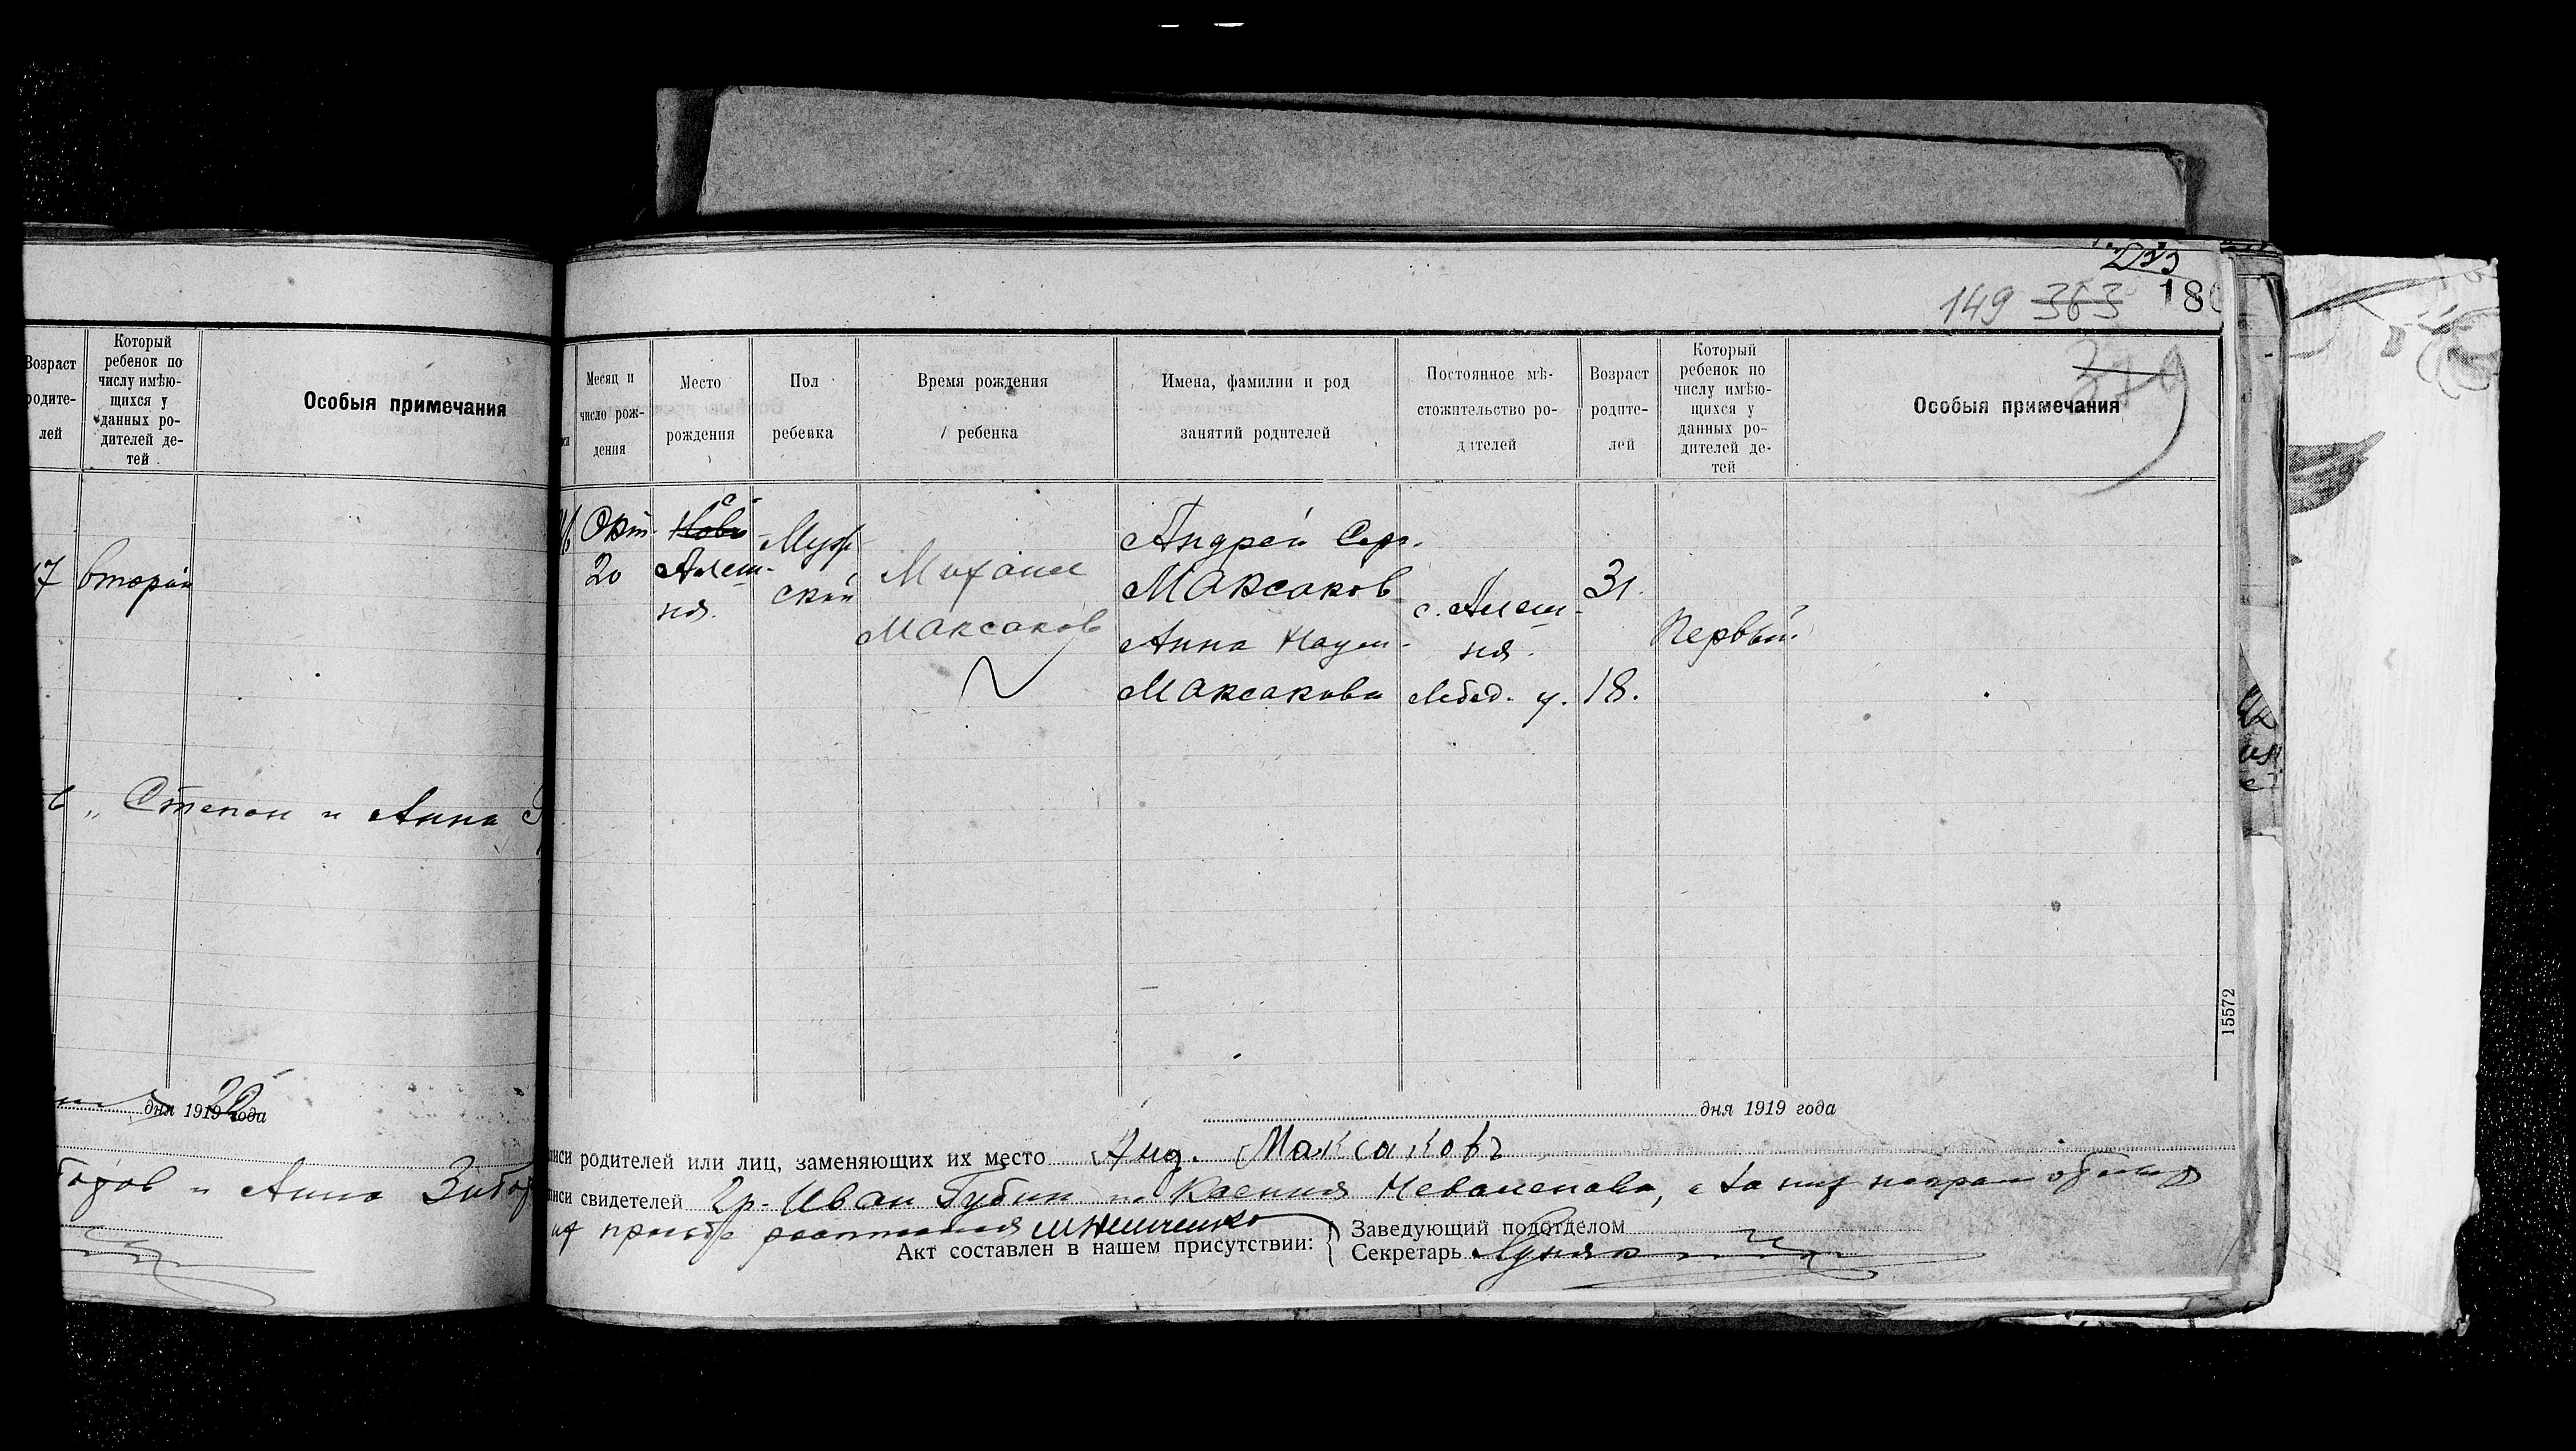 149 363 18
Возраст
родите-
лей
Который
ребенок по
числу имѣю-
щихся у
данных ро-
дителей де-
тей
Особыя примечания
17 второй
6 „ Степан и Анна
дня 1919 года
20
и Анна
Месяц и
число рож-
дения
Место
рождения
Пол
ребенка
Время рождения
ребенка
Имена, фамилии и род
занятий родителей
Постоянное мѣ-
стожительство ро-
дителей
Возраст
родите-
лей
Который
ребенок по
числу имѣю-
щихся у
данных ро-
дителей де-
тей
Особыя примечания
Окт.
20
с.
Алеш-
ня.
Муж
ской
Михаил
Максаков
Андрей Сер.
Максаков
Анна Наум.
Максакова
с. Алеш-
ня.
Лебед. у.
31.
18.
Первый
15572
дня 1919 года
писи родителей или лиц, заменяющих их место Анд. Максаковъ
писи свидетелей гр. Иван Губин и Ксения
Акт составлен в нашем присутствии:
Заведующий подотделом
Секретарь